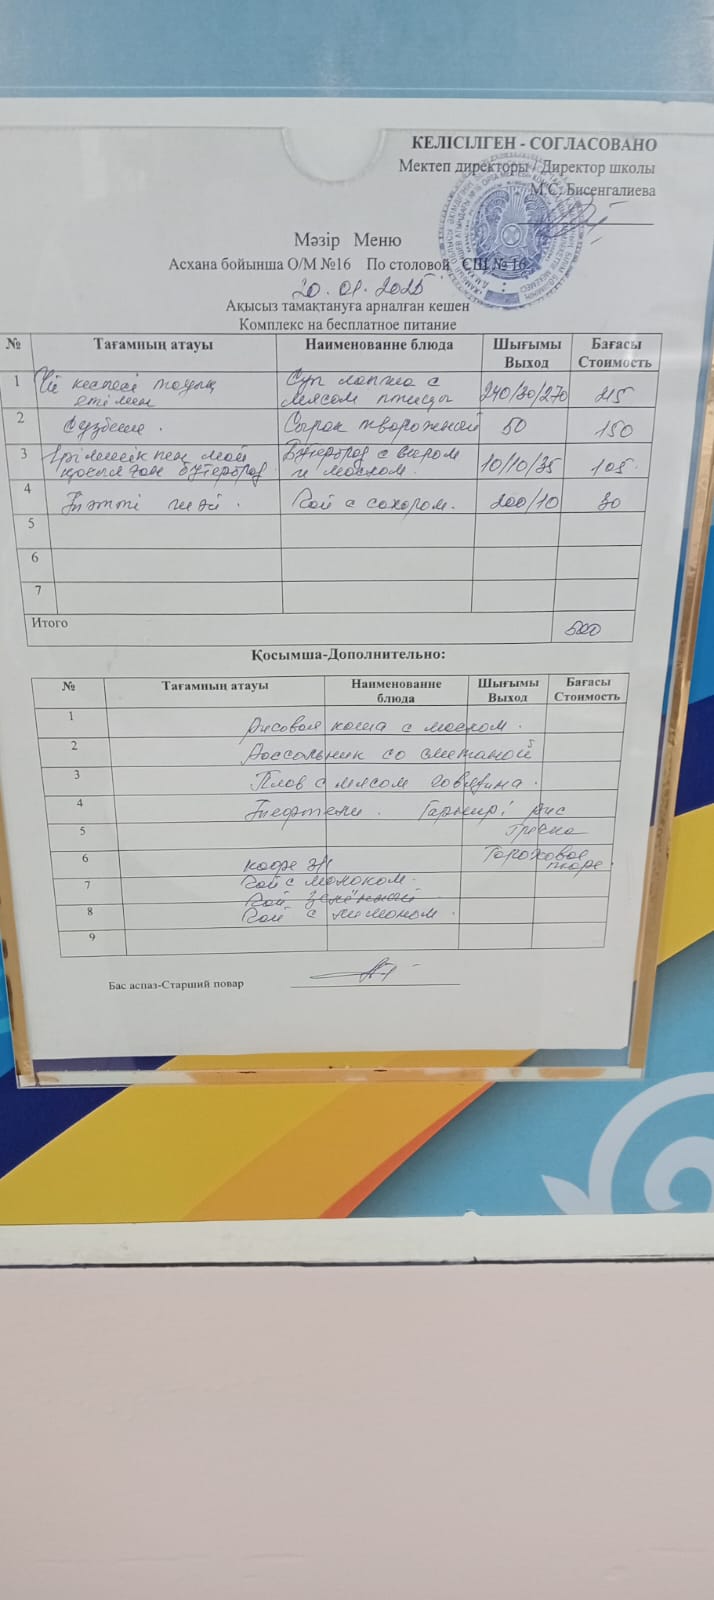 КЕЛІСІЛГЕН - СОГЛАСОВАНО
Мектеп директоры / Директор школы
М.С. Бисенгалиева
Мәзір Меню
Асхана бойынша О/М №16 По столовой СШ № 16
20.01.2025
Ақысыз тамақтануға арналған кешен
Комплекс на бесплатное питание
№ Тағамның атауы Наименование блюда Шығымы Выход Бағасы Стоимость
1 Үй кеспесі тауық етімен Суп лапша с мясом птицы 240/30/270 215
2 Сүзбеше. Сырок творожной 50 150
3 Ірімшік пен май қосылған бутерброд Бутерброд с сыром и маслом. 10/10/35 105.
4 Тәтті шәй. Чай с сахаром. 200/10 30
5
6
7
Итого 500
Қосымша-Дополнительно:
№ Тағамның атауы Наименование блюда Шығымы Выход Бағасы Стоимость
1 Рисовая каша с маслом.
2 Рассольник со сметаной
3 Плов с мясом говядина.
4 Бифштекс. Гарнир: рис
5 Гречка
6 кофе 3/1 Гороховое пюре.
7 Чай с молоком.
Чай зелённый
8 Чай с лимоном.
9
Бас аспаз-Старший повар